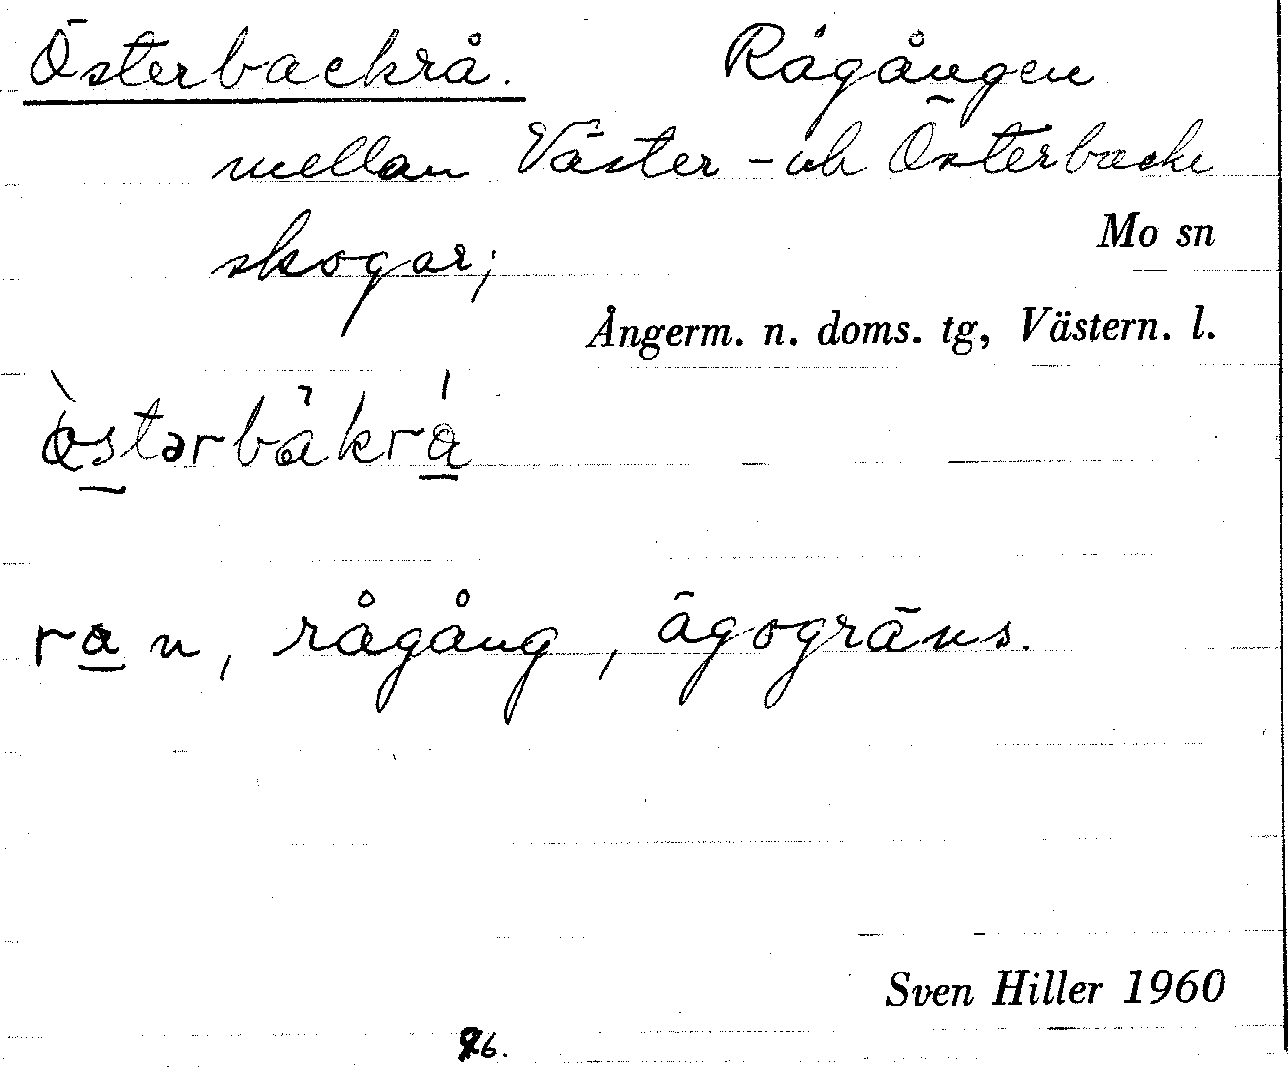 Österbackrå. Rågången
mellan Väster- och Österbacke
skogar;
Mo sn
Ångerm. n. doms. tg, Västern. l.
ra n, rågång, ägogräns.
Sven Hiller 1960